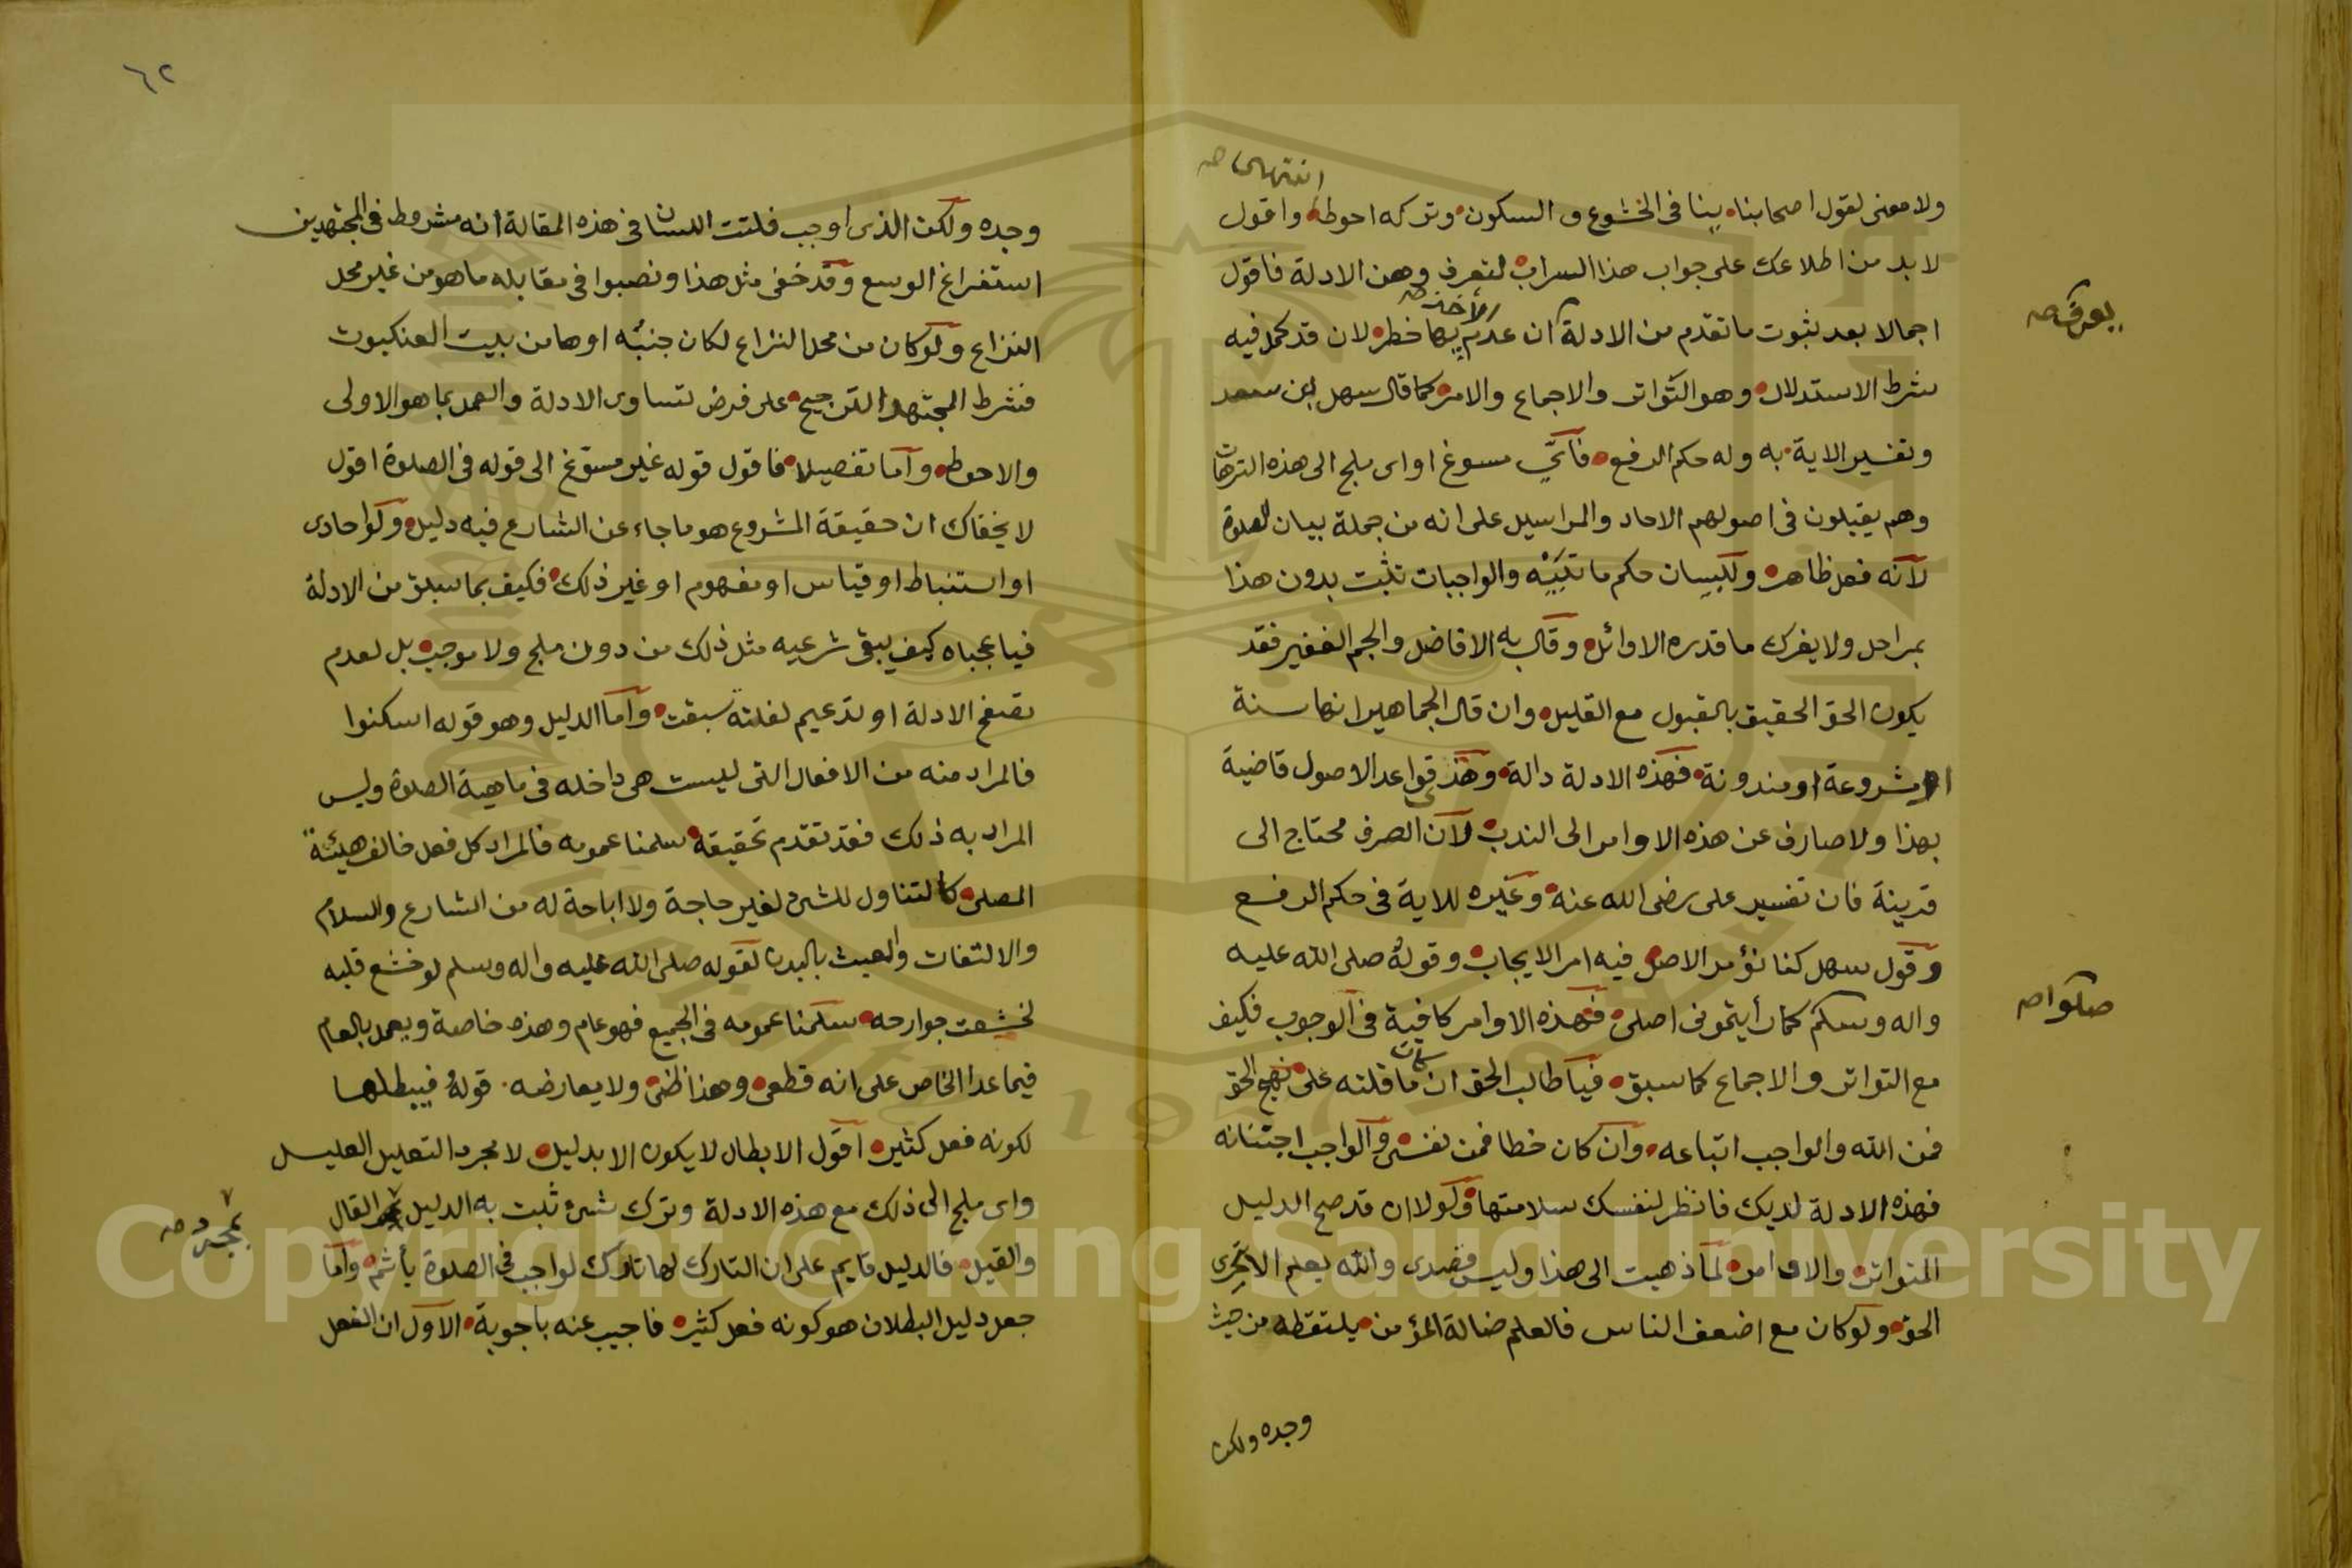 انتهى صح
ولا معنى لقول اصحابنا ينا في الخشوع و السكون وتركه احوط واقول
لا بد من اطلاعك على جواب هذا السراب لتعرف وهن الادلة فاقول
يعرف صح
الأخذ صح
اجمالا بعد ثبوت ما تقدم من الادلة ان عدم بها خطر لان قد كمل فيه
شرط الاستدلال وهو التواتر والاجماع والامر كما قال سهل ابن سعد
وتفسير الاية به وله حكم الرفع فأيّ مسوغ او اى ملج الى هذه الترهات
وهم يقبلون في اصولهم الاحاد والمراسيل على انه من جملة بيان الصلوة
لانه فعل ظاهر ولبيان حكم ما تبينه والواجبات تثبت بدون هذا
بمراحل ولا يغرك ما قدره الاوائل وقال به الافاضل والجم الغفير فقد
يكون الحق الحقيق بالقبول مع القليل وان قال الجماهير انها سنة
او مشروعة او مندوبة فهذه الادلة دالة وهذى قواعد الاصول قاضية
بهذا ولا صارف عن هذه الاوامر الى الندب لان الصرف محتاج الى
قرينة فان تفسير على رضى الله عنه وغيره للاية في حكم الرفع
وقول سهل كنا نؤمر الاصل فيه امر الايجاب وقوله صلى الله عليه
صلوا صح
واله وسلم كما رأيتمونى اصلى فهذه الاوامر كافية في الوجوب فكيف
مع التواتر والاجماع كما سبق فيا طالب الحق ان كان ما قلته على نهج الحق
فمن الله والواجب اتباعه وان كان خطا فمن نفسى والواجب اجتنابه
فهذه الادلة لديك فانظر لنفسك سلامتها ولولا ان قد صح الدليل
المتواتر والاوامر لما ذهبت الى هذا وليس قصدى والله يعلم الا تحرى
الحق ولو كان مع اضعف الناس فالعلم ضالة المؤمن يلتقطه من حيث
وجده ولكن
٦٢
وجده ولكن الذى اوجب فلتت اللسان في هذه المقالة انه مشروط في المجتهدين
استفراغ الوسع وقد خفى مثل هذا ونصبوا في مقابله ما هو من غير محل
النزاع ولو كان من محل النزاع لكان جنبه اوها من بيت العنكبوت
فشرط المجتهد الترجيح على فرض تساوى الادلة والعمل بما هو الاولى
والاحوط واما تفصيلا فاقول قوله غير مسوّغ الى قوله في الصلوة اقول
لا يخفاك ان حقيقة المشروع هو ما جاء عن الشارع فيه دليل ولو احادى
او استنباط او قياس او مفهوم او غير ذلك فكيف بما سبق من الادلة
فيا عجباه كيف يبقى شرعيه مثل ذلك من دون ملج ولا موجب بل لعدم
تصفح الادلة او تدعيم لفلتة سبقت واما الدليل وهو قوله اسكنوا
فالمراد منه من الافعال التى ليست هى داخله في ماهية الصلوة وليس
المراد به ذلك فقد تقدم تحقيقه سلمنا عمومه فالمراد كل فعل خالف هيئة
المصلى كالتناول للشئ لغير حاجة ولا اباحة له من الشارع والسلام
والالتفات والعبث باليدن لقوله صلى الله عليه واله وسلم لو خشع قلبه
لخشعت جوارحه سلمنا عمومه في الجميع فهو عام وهذه خاصة ويعمل بالعام
فيما عدا الخاص على انه قطعى وهذا ظنى ولا يعارضه قوله فيبطلها
لكونه فعل كثير اقول الابطال لا يكون الا بدليل لا مجرد التعليل العليل
واى ملج الى ذلك مع هذه الادلة وترك شئ ثبت به الدليل القال
بمجرد صح
والقيل فالدليل قايم على ان التارك لها تارك لواجب في الصلوة يأثم واما
جعل دليل البطلان هو كونه فعل كثير فاجيب عنه باجوبة الاول ان الفعل
Copyright © King Saud University
1957